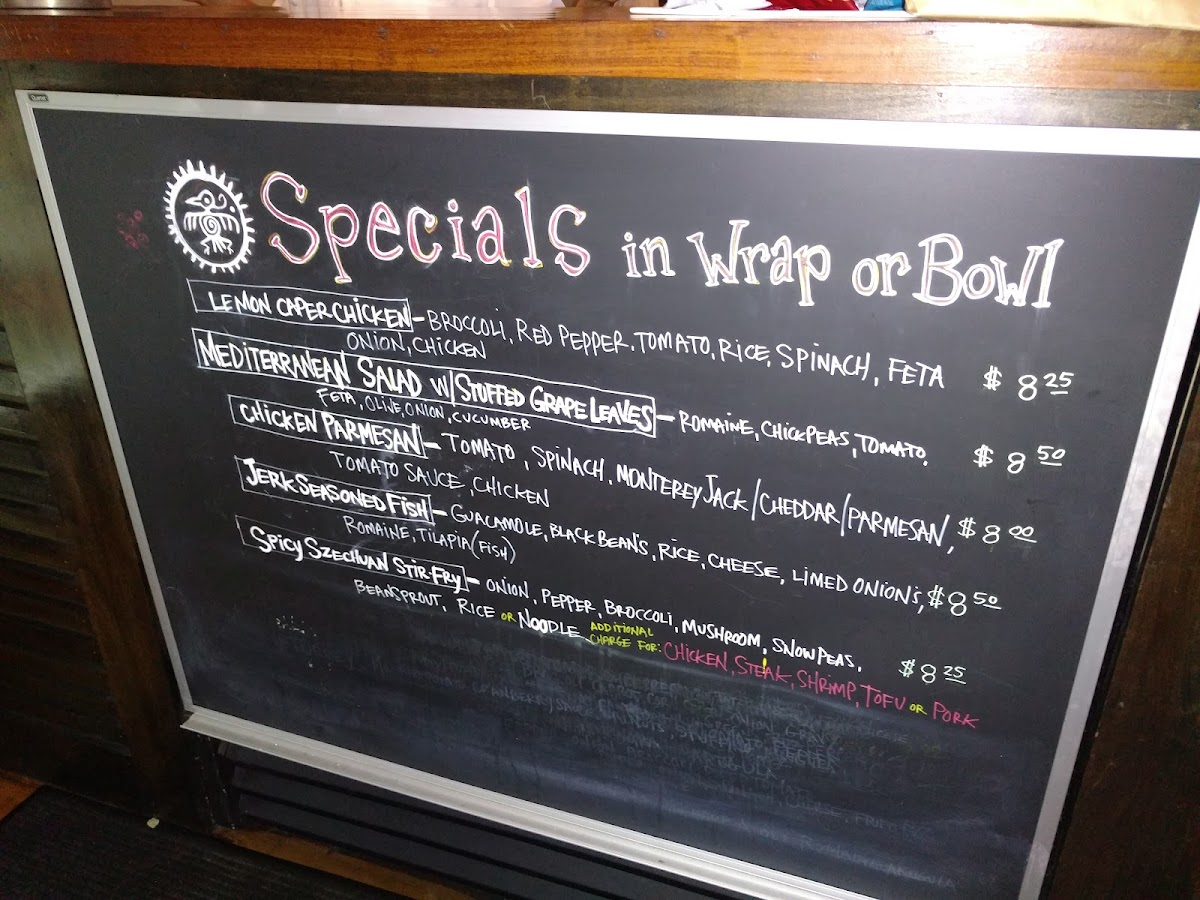 Specials in Wrap or Bowl
LEMON CAPER CHICKEN - BROCCOLI, RED PEPPER, TOMATO, RICE, SPINACH, FETA $8 25
ONION, CHICKEN
MEDITERRANEAN SALAD W/STUFFED GRAPE LEAVES - ROMAINE, CHICKPEAS, TOMATO, $8 50
FETA, OLIVE, ONION, CUCUMBER
CHICKEN PARMESAN - TOMATO, SPINACH, MONTEREY JACK/CHEDDAR/PARMESAN, $8 00
TOMATO SAUCE, CHICKEN
JERK SEASONED FISH - GUACAMOLE, BLACK BEAN'S, RICE, CHEESE, LIMED ONION'S, $8 50
ROMAINE, TILAPIA (FISH)
SPICY SZECHUAN STIR-FRY - ONION, PEPPER, BROCCOLI, MUSHROOM, SNOWPEAS, $8 25
BEANSPROUT, RICE OR NOODLE ADDITIONAL CHARGE FOR: CHICKEN, STEAK, SHRIMP, TOFU OR PORK